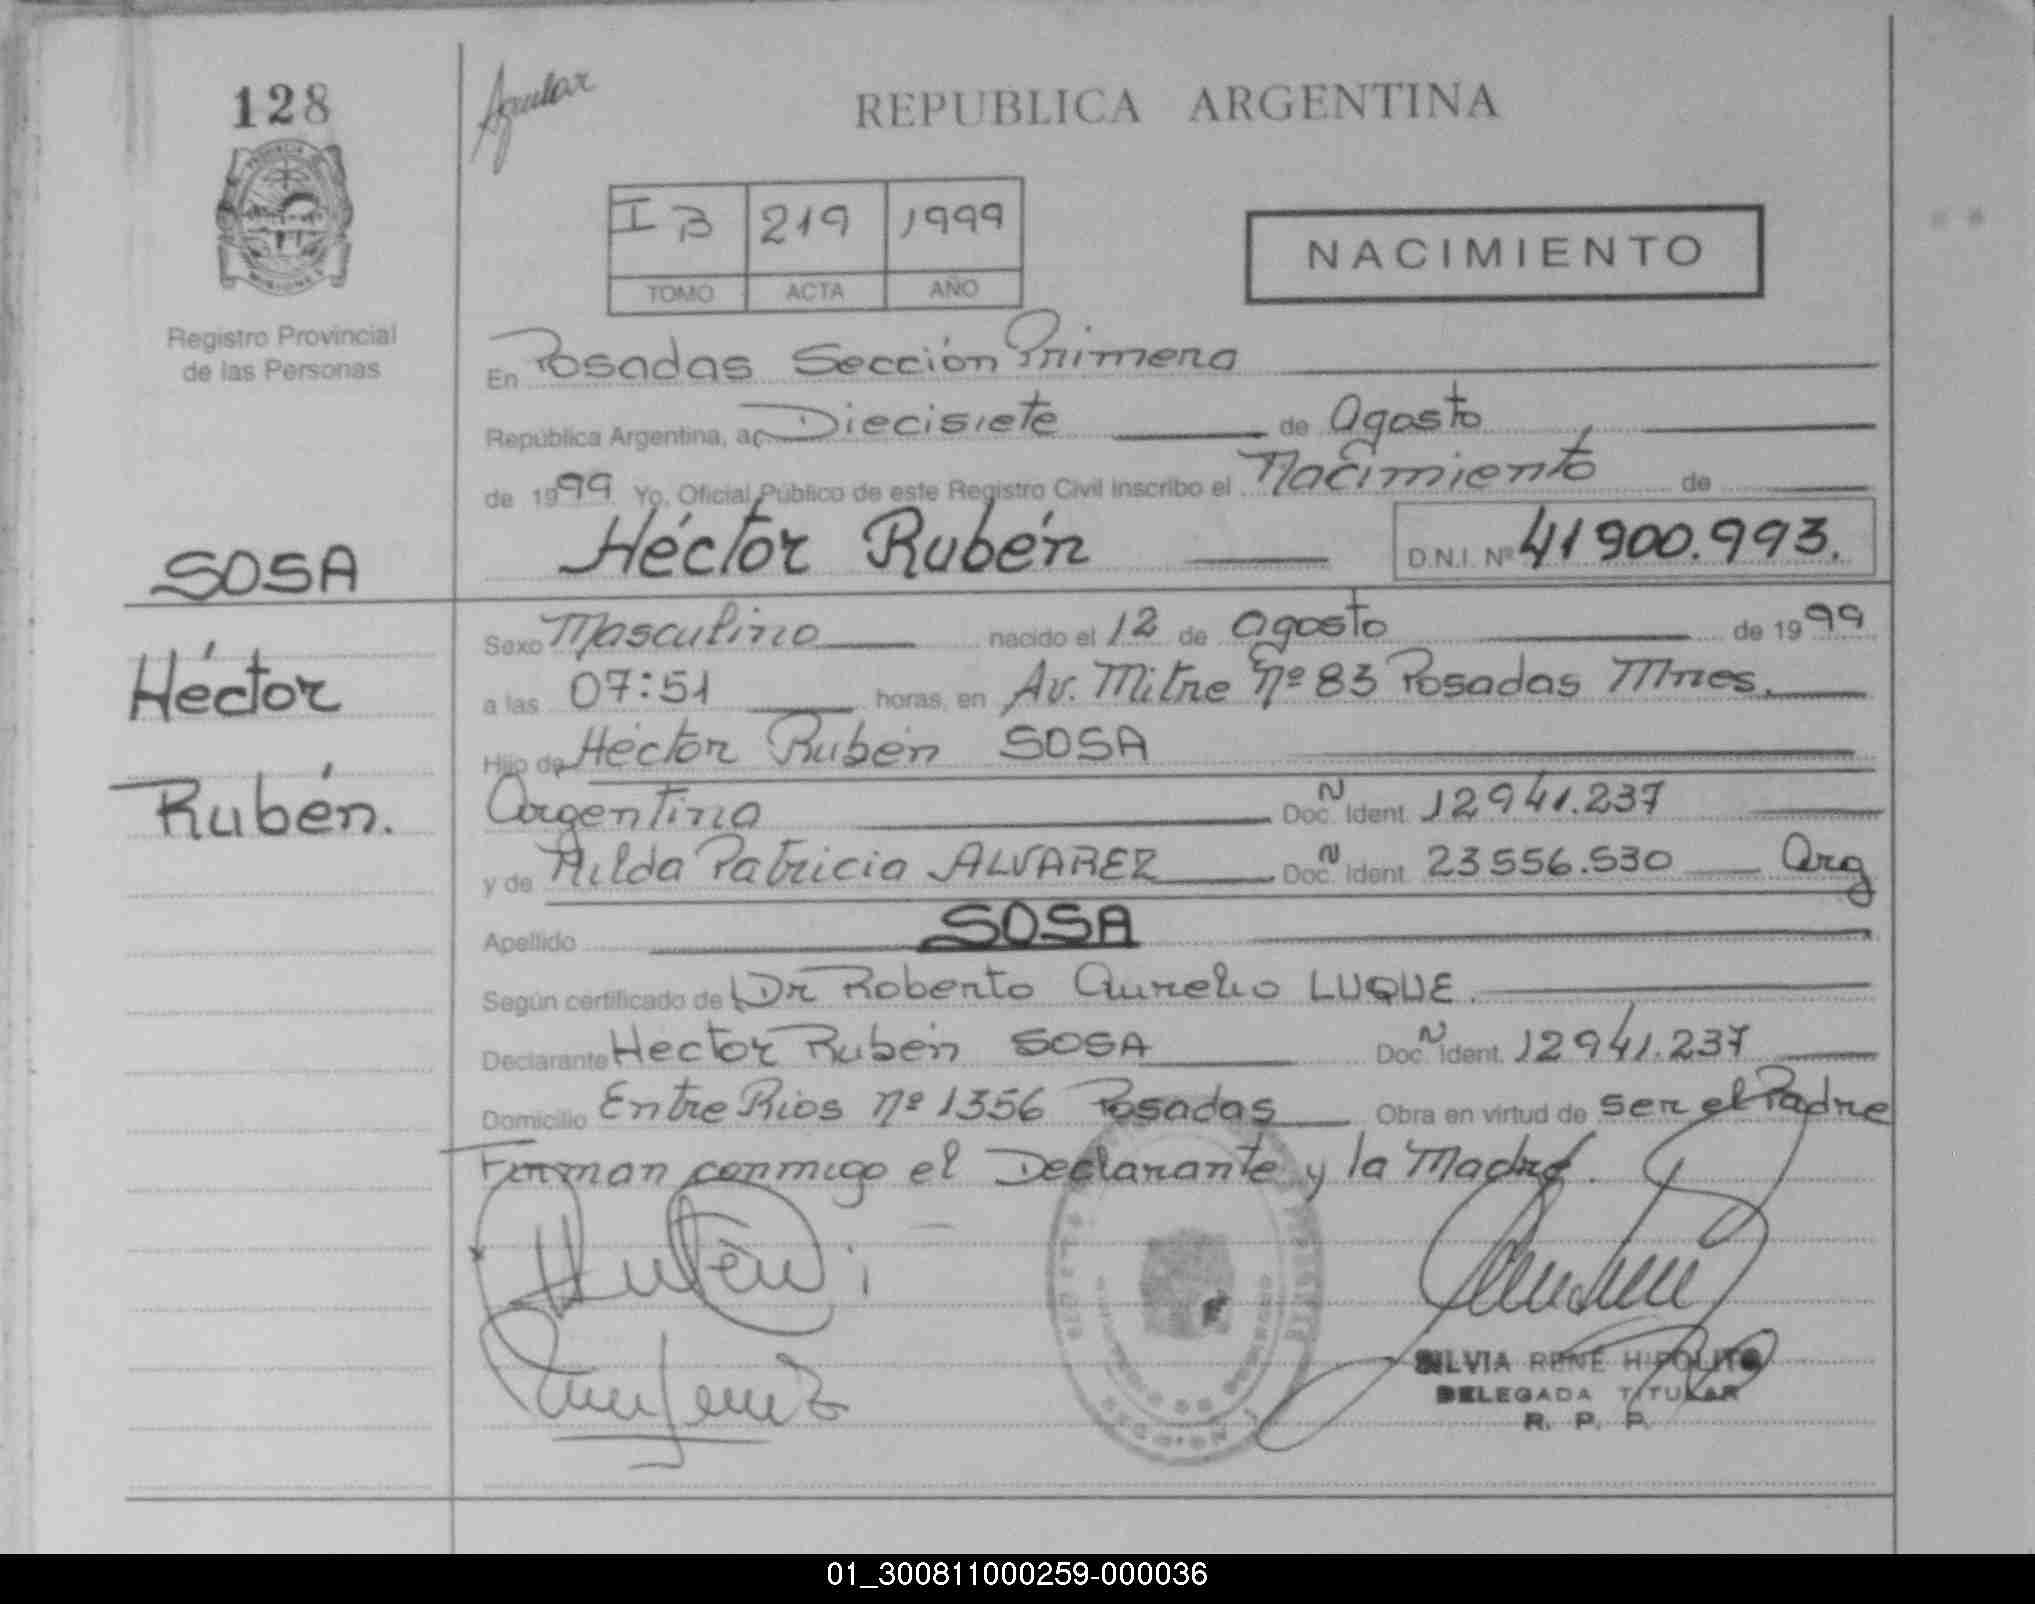 128
Aguilar
REPUBLICA ARGENTINA
I B 219 1999
TOMO ACTA AÑO
NACIMIENTO
Registro Provincial
de las Personas
En Posadas Sección Primera
República Argentina, a Diecisiete de Agosto
de 1999 Yo, Oficial Público de este Registro Civil inscribo el Nacimiento de
Héctor Rubén D.N.I. Nº 41900.993.
SOSA
Héctor
Rubén.
Sexo Masculino nacido el 12 de agosto de 1999
a las 07:51 horas, en Av. Mitre Nº 83 Posadas Mnes.
Hijo de Héctor Rubén SOSA
Argentina Doc. Ñ Ident. 12941.237
y de Hilda Patricia ALVAREZ Doc. Ñ Ident. 23556.530 Arg
Apellido SOSA
Según certificado de Dr Roberto Aurelio LUQUE
Declarante Hector Rubén SOSA Doc. Ñ Ident. 12941.237
Domicilio Entre Rios Nº 1356 Posadas Obra en virtud de ser el Padre
Firman conmigo el Declarante y la Madre.
SILVIA RENE HIPOLITO
DELEGADA TITULAR
R. P. P.
01_300811000259-000036